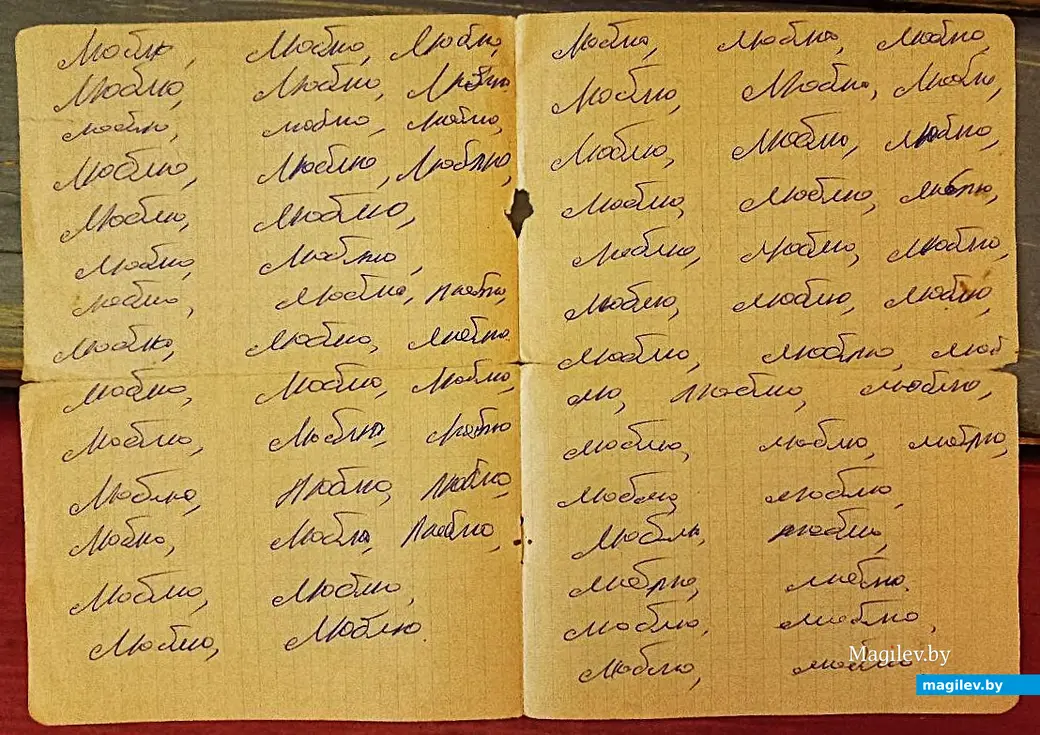 Люблю, Люблю, Люблю,
Люблю, Люблю, Люблю
люблю, люблю, люблю,
Люблю, Люблю, Люблю,
Люблю, Люблю,
Люблю, Люблю,
люблю, Люблю, люблю,
Люблю, Люблю, люблю
люблю, Люблю, люблю,
Люблю, Люблю, Люблю
Люблю, Люблю, люблю,
Люблю, Люблю, Люблю,
Люблю, Люблю,
Люблю, Люблю.
Люблю, Люблю, Люблю,
Люблю, Люблю, Люблю,
Люблю, Люблю, люблю,
Люблю, Люблю, люблю,
Люблю, Люблю, Люблю,
Люблю, люблю, люблю
Люблю, люблю, люб
лю, Люблю, люблю,
люблю, люблю, люблю,
люблю, люблю,
Люблю, люблю,
люблю, люблю.
люблю, люблю,
Люблю, люблю
Magilev.by
magilev.by